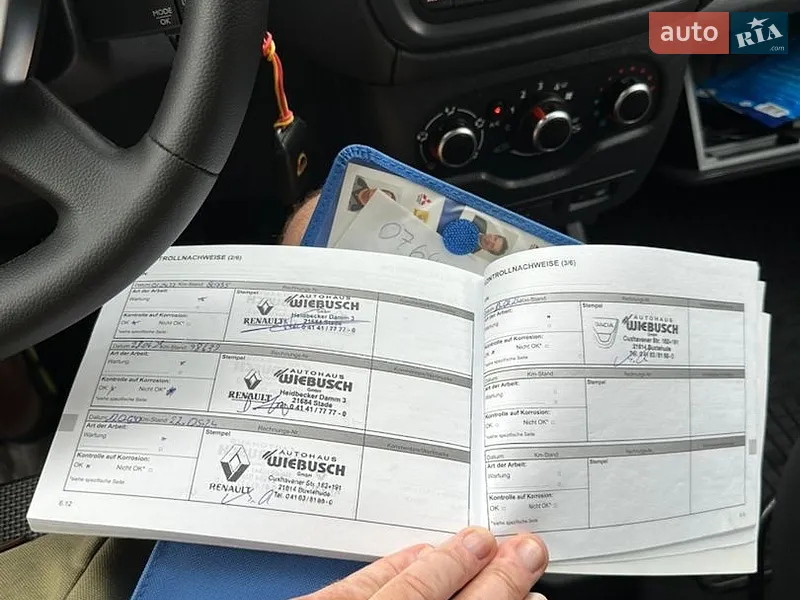 MODE
OK
auto
RIA
.com
1 2 3 4
A/C
076
KONTROLLNACHWEISE (2/6)
Datum Km-Stand Rechnungs-Nr.
Art der Arbeit:
Wartung
Kontrolle auf Korrosion:
OK Nicht OK*
*siehe spezifische Seite
Stempel
RENAULT
AUTOHAUS
WIEBUSCH
GmbH
Heidbecker Damm 3
21684 Stade
Tel. 0 41 41 / 77 77 - 0
Datum Km-Stand Rechnungs-Nr.
Art der Arbeit:
Wartung
Kontrolle auf Korrosion:
OK Nicht OK*
*siehe spezifische Seite
Stempel
RENAULT
AUTOHAUS
WIEBUSCH
GmbH
Heidbecker Damm 3
21684 Stade
Tel. 0 41 41 / 77 77 - 0
Datum Km-Stand Rechnungs-Nr.
Art der Arbeit:
Wartung
Kontrolle auf Korrosion:
OK Nicht OK*
*siehe spezifische Seite
Stempel
RENAULT
AUTOHAUS
WIEBUSCH
GmbH
Cuxhavener Str. 182+191
21614 Buxtehude
Tel. 0 41 61/81 88-0
6.12
KONTROLLNACHWEISE (3/6)
Km-Stand Rechnungs-Nr.
Art der Arbeit:
Wartung
Kontrolle auf Korrosion:
OK Nicht OK*
*siehe spezifische Seite
Stempel
DACIA
AUTOHAUS
WIEBUSCH
GmbH
Cuxhavener Str. 182+191
21614 Buxtehude
Datum Km-Stand Rechnungs-Nr.
Art der Arbeit:
Wartung
Kontrolle auf Korrosion:
OK Nicht OK*
*siehe spezifische Seite
Stempel
Datum Km-Stand Rechnungs-Nr.
Art der Arbeit:
Wartung
Kontrolle auf Korrosion:
OK Nicht OK*
*siehe spezifische Seite
Stempel